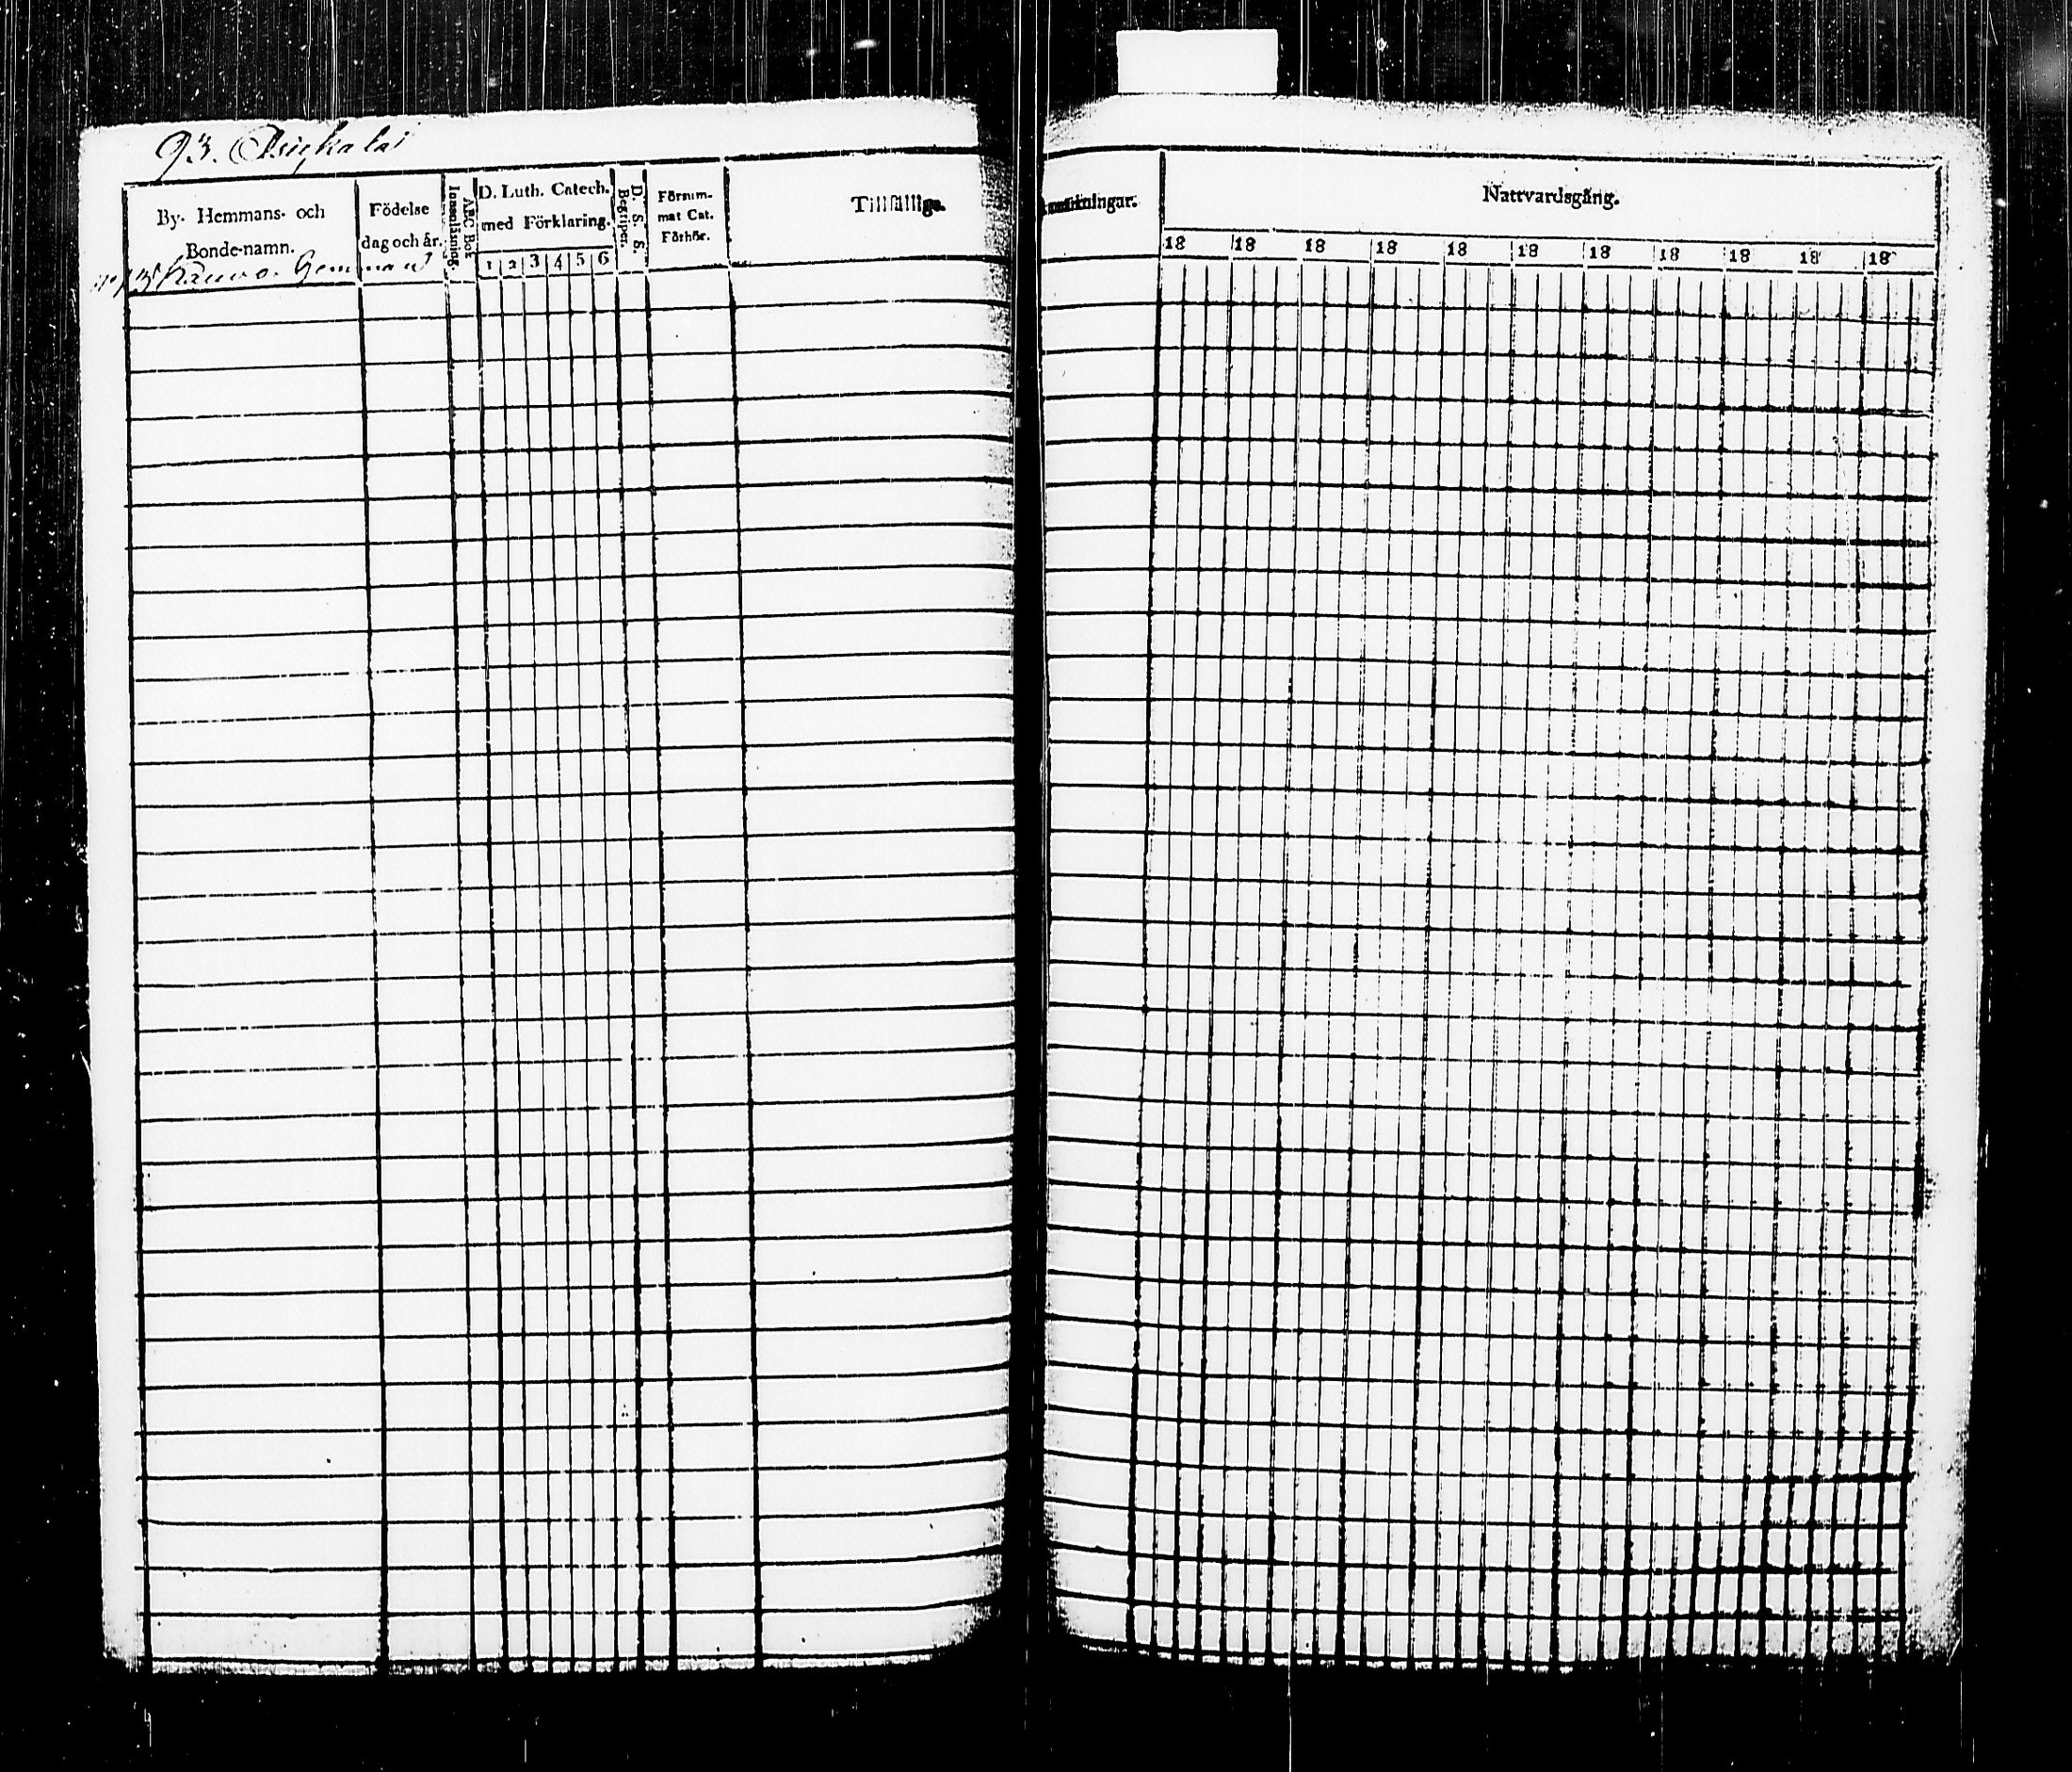 93. Asikkala
By. Hemmans- och
Bonde-namn.
Födelse
dag och år.
ABC Bok
Innanläsning.
D. Luth. Catech.
med Förklaring.
1 2 3 4 5 6
D. S. S.
Begriper.
Försum-
mat Cat.
Förhör.
Tillfälliga
Anmärkningar.
Nattvardsgång.
18 18 18 18 18 18 18 18 18 18 18